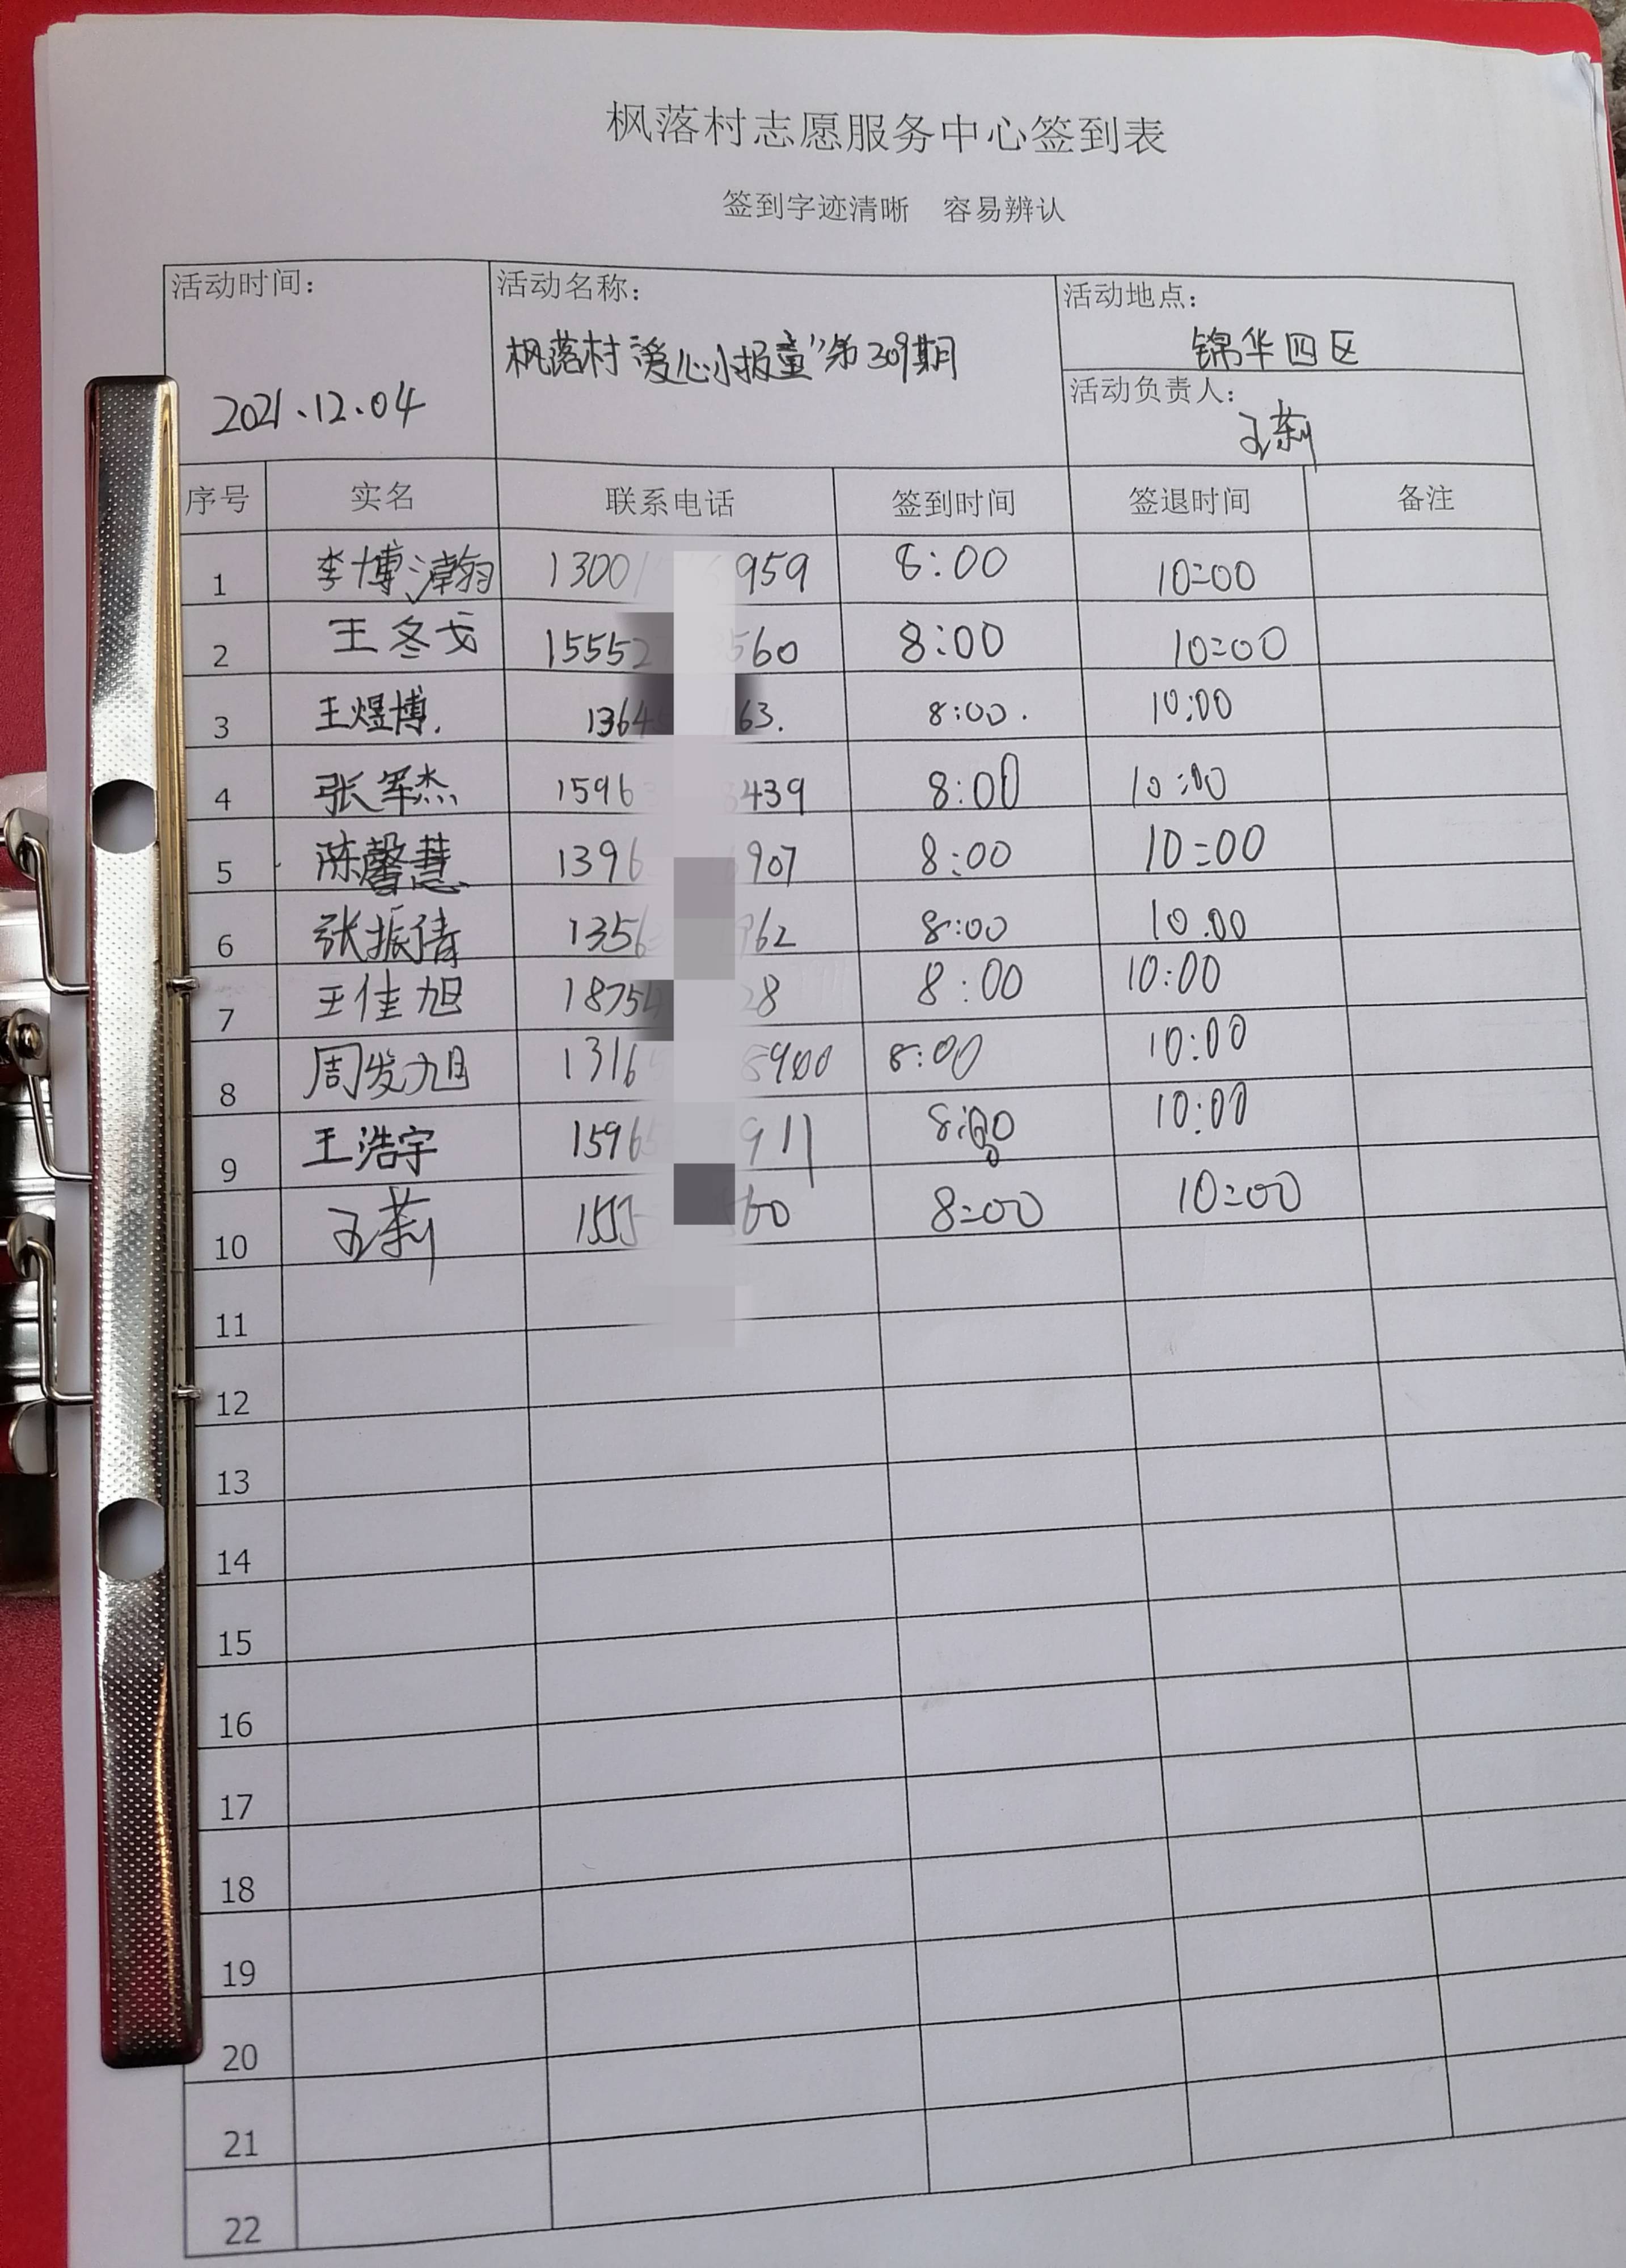 枫落村志愿服务中心签到表
签到字迹清晰 容易辨认
活动时间： 活动名称： 活动地点：
2021.12.04 枫落村"爱心小报童"第309期 锦华四区
活动负责人：
王莉
序号 实名 联系电话 签到时间 签退时间 备注
1 李博瀚 1300 959 8:00 10:00
2 王冬戈 15552 560 8:00 10:00
3 王煜博. 1364 63. 8:00. 10:00
4 张军杰 1596 439 8:00 10:00
5 陈馨慧 1396 907 8:00 10:00
6 张振倩 1356 962 8:00 10.00
7 王佳旭 1875 28 8:00 10:00
8 周发旭 1316 5900 8:00 10:00
9 王浩宇 1596 911 8:00 10:00
10 王莉 155 60 8:00 10:00
11
12
13
14
15
16
17
18
19
20
21
22